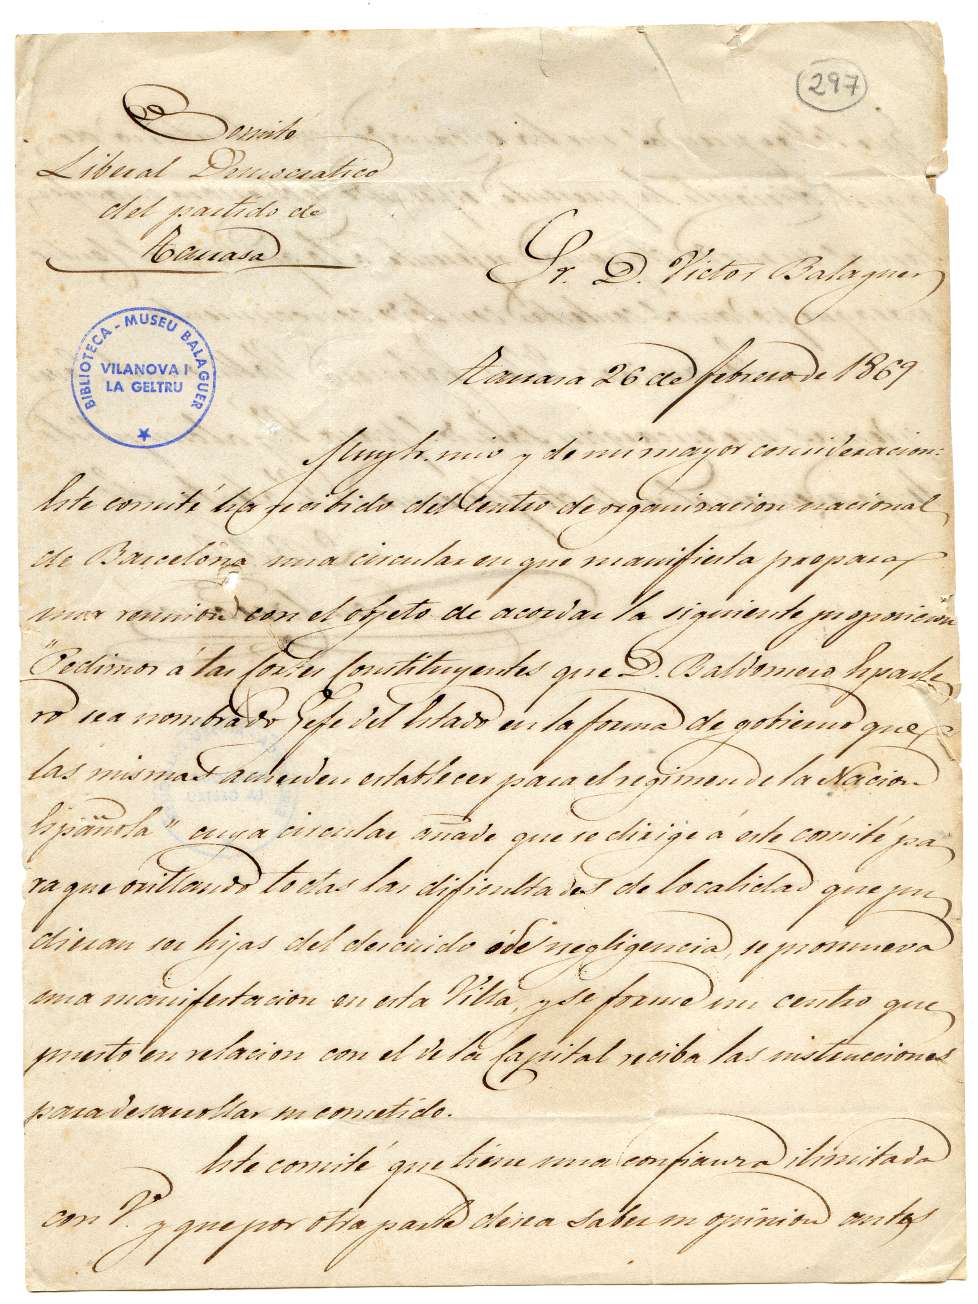 297
Comité
Liberal Democratico
del partido de
Tarrasa
Sr. D. Victor Balaguer
BIBLIOTECA - MUSEU BALAGUER
VILANOVA I
LA GELTRU
Tarrasa 26 de febrero de 1869
Muy Sr. mio y de mi mayor consideracion:
Este comité ha recibido del centro de organizacion nacional
de Barcelona una circular en que manifiesta preparar
una reunion con el objeto de acordar la siguiente proposicion
"Pedimos á las Cortes Constituyentes que D. Baldomero Esparte
ro sea nombrado Gefe del Estado en la forma de gobierno que
las mismas acuerden establecer para el regimen de la Nacion
Española" cuya circular añade que se dirige á este comité pa
ra que orillando todas las dificultades de localidad que pu
dieran ser hijas del descuido ó de negligencia, se promueva
una manifestacion en esta Villa, y se forme un centro que
puesto en relacion con el de la Capital reciba las instrucciones
para desarrollar su cometido.
Este comité que tiene una confianza ilimitada
con V. y que por otra parte desea saber su opinion antes